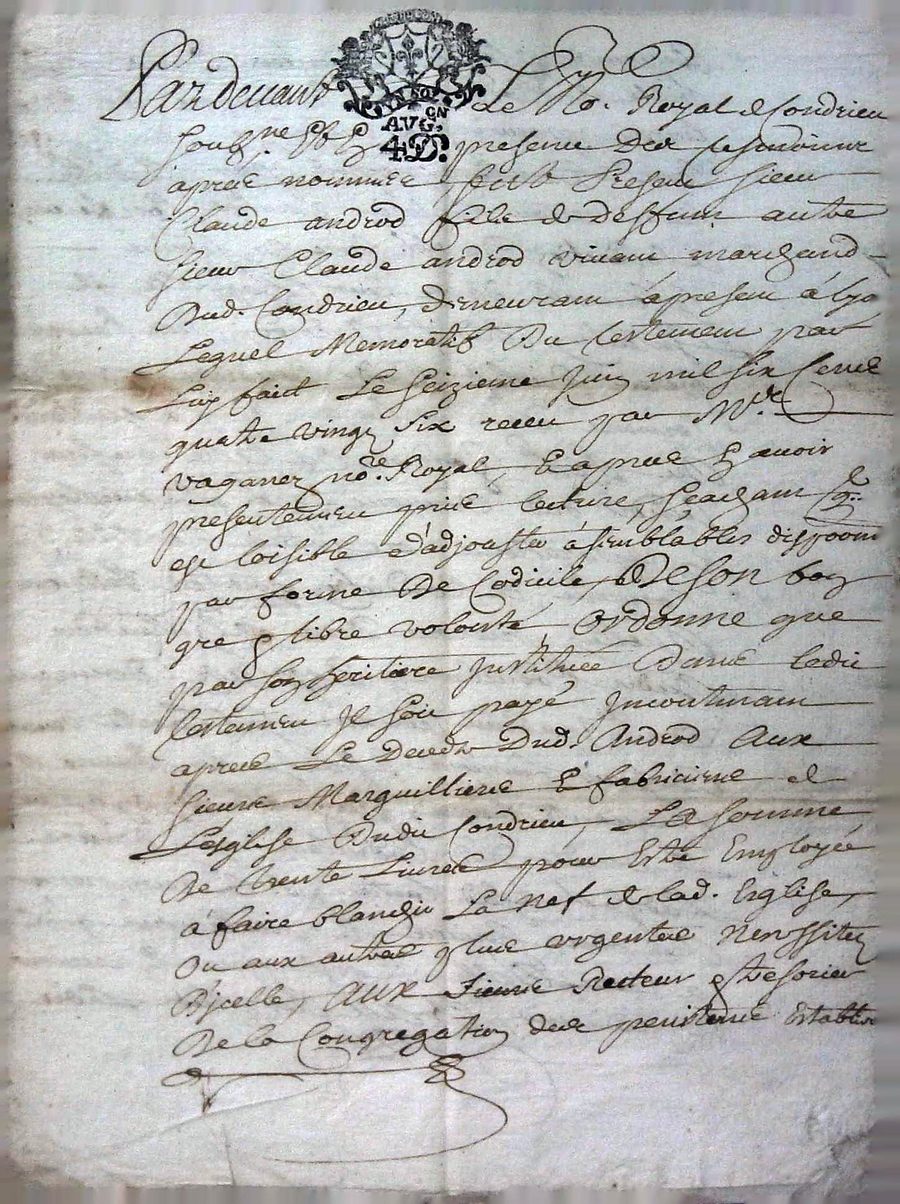 Pardevant Le No. Royal de Condrieu
soubsne presence des tesmoings
apres nommes fust Present sieur
Claude androd fils de deffunt autre
sieur Claude androd vivant marchand
dud. Condrieu, demeurant a present a Lyo
Lequel Memoratif Du testement par
Luy fait Le seizieme Juin mil six Cents
quatre vingt six receu par Mre.
vaganez no.re Royal, Et apres En avoir
presentement prins lecture, sachant q.l
est loisible d'adjouster a semblables disposons
par forme De Codicile, de DeSon bon
gre et libre volonte, ordonne que
par son heritiere Instituée Dans ledit
testement Il soit payé Incontinant
apres Le Deceds Dud. Androd Aux
sieurs Marguilliers Et fabriciens de
L'esglise Dudit Condrieu, La somme
De trente Livres pour Estre Employée
a faire blanchir La nef de lad. Esglise,
Ou aux autres plus urgentes Necessitez
D'icelle, Aux sieurs Recteur et tresorier
De la Congregation des penitens Establis
AUG.ON
4 D.